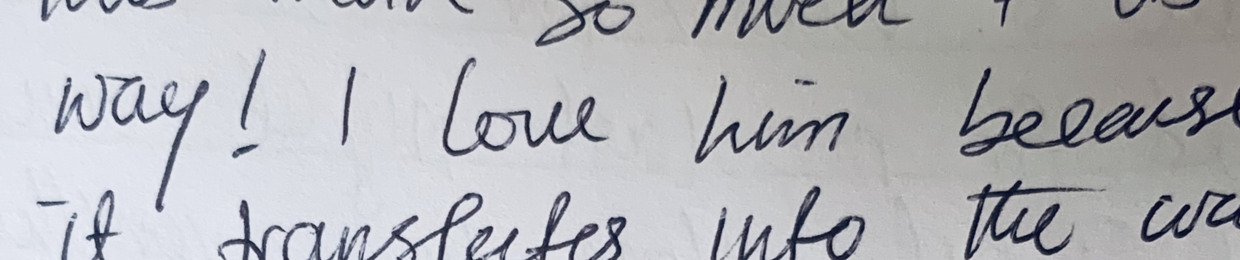 so much
way! I love him because
it translates into the